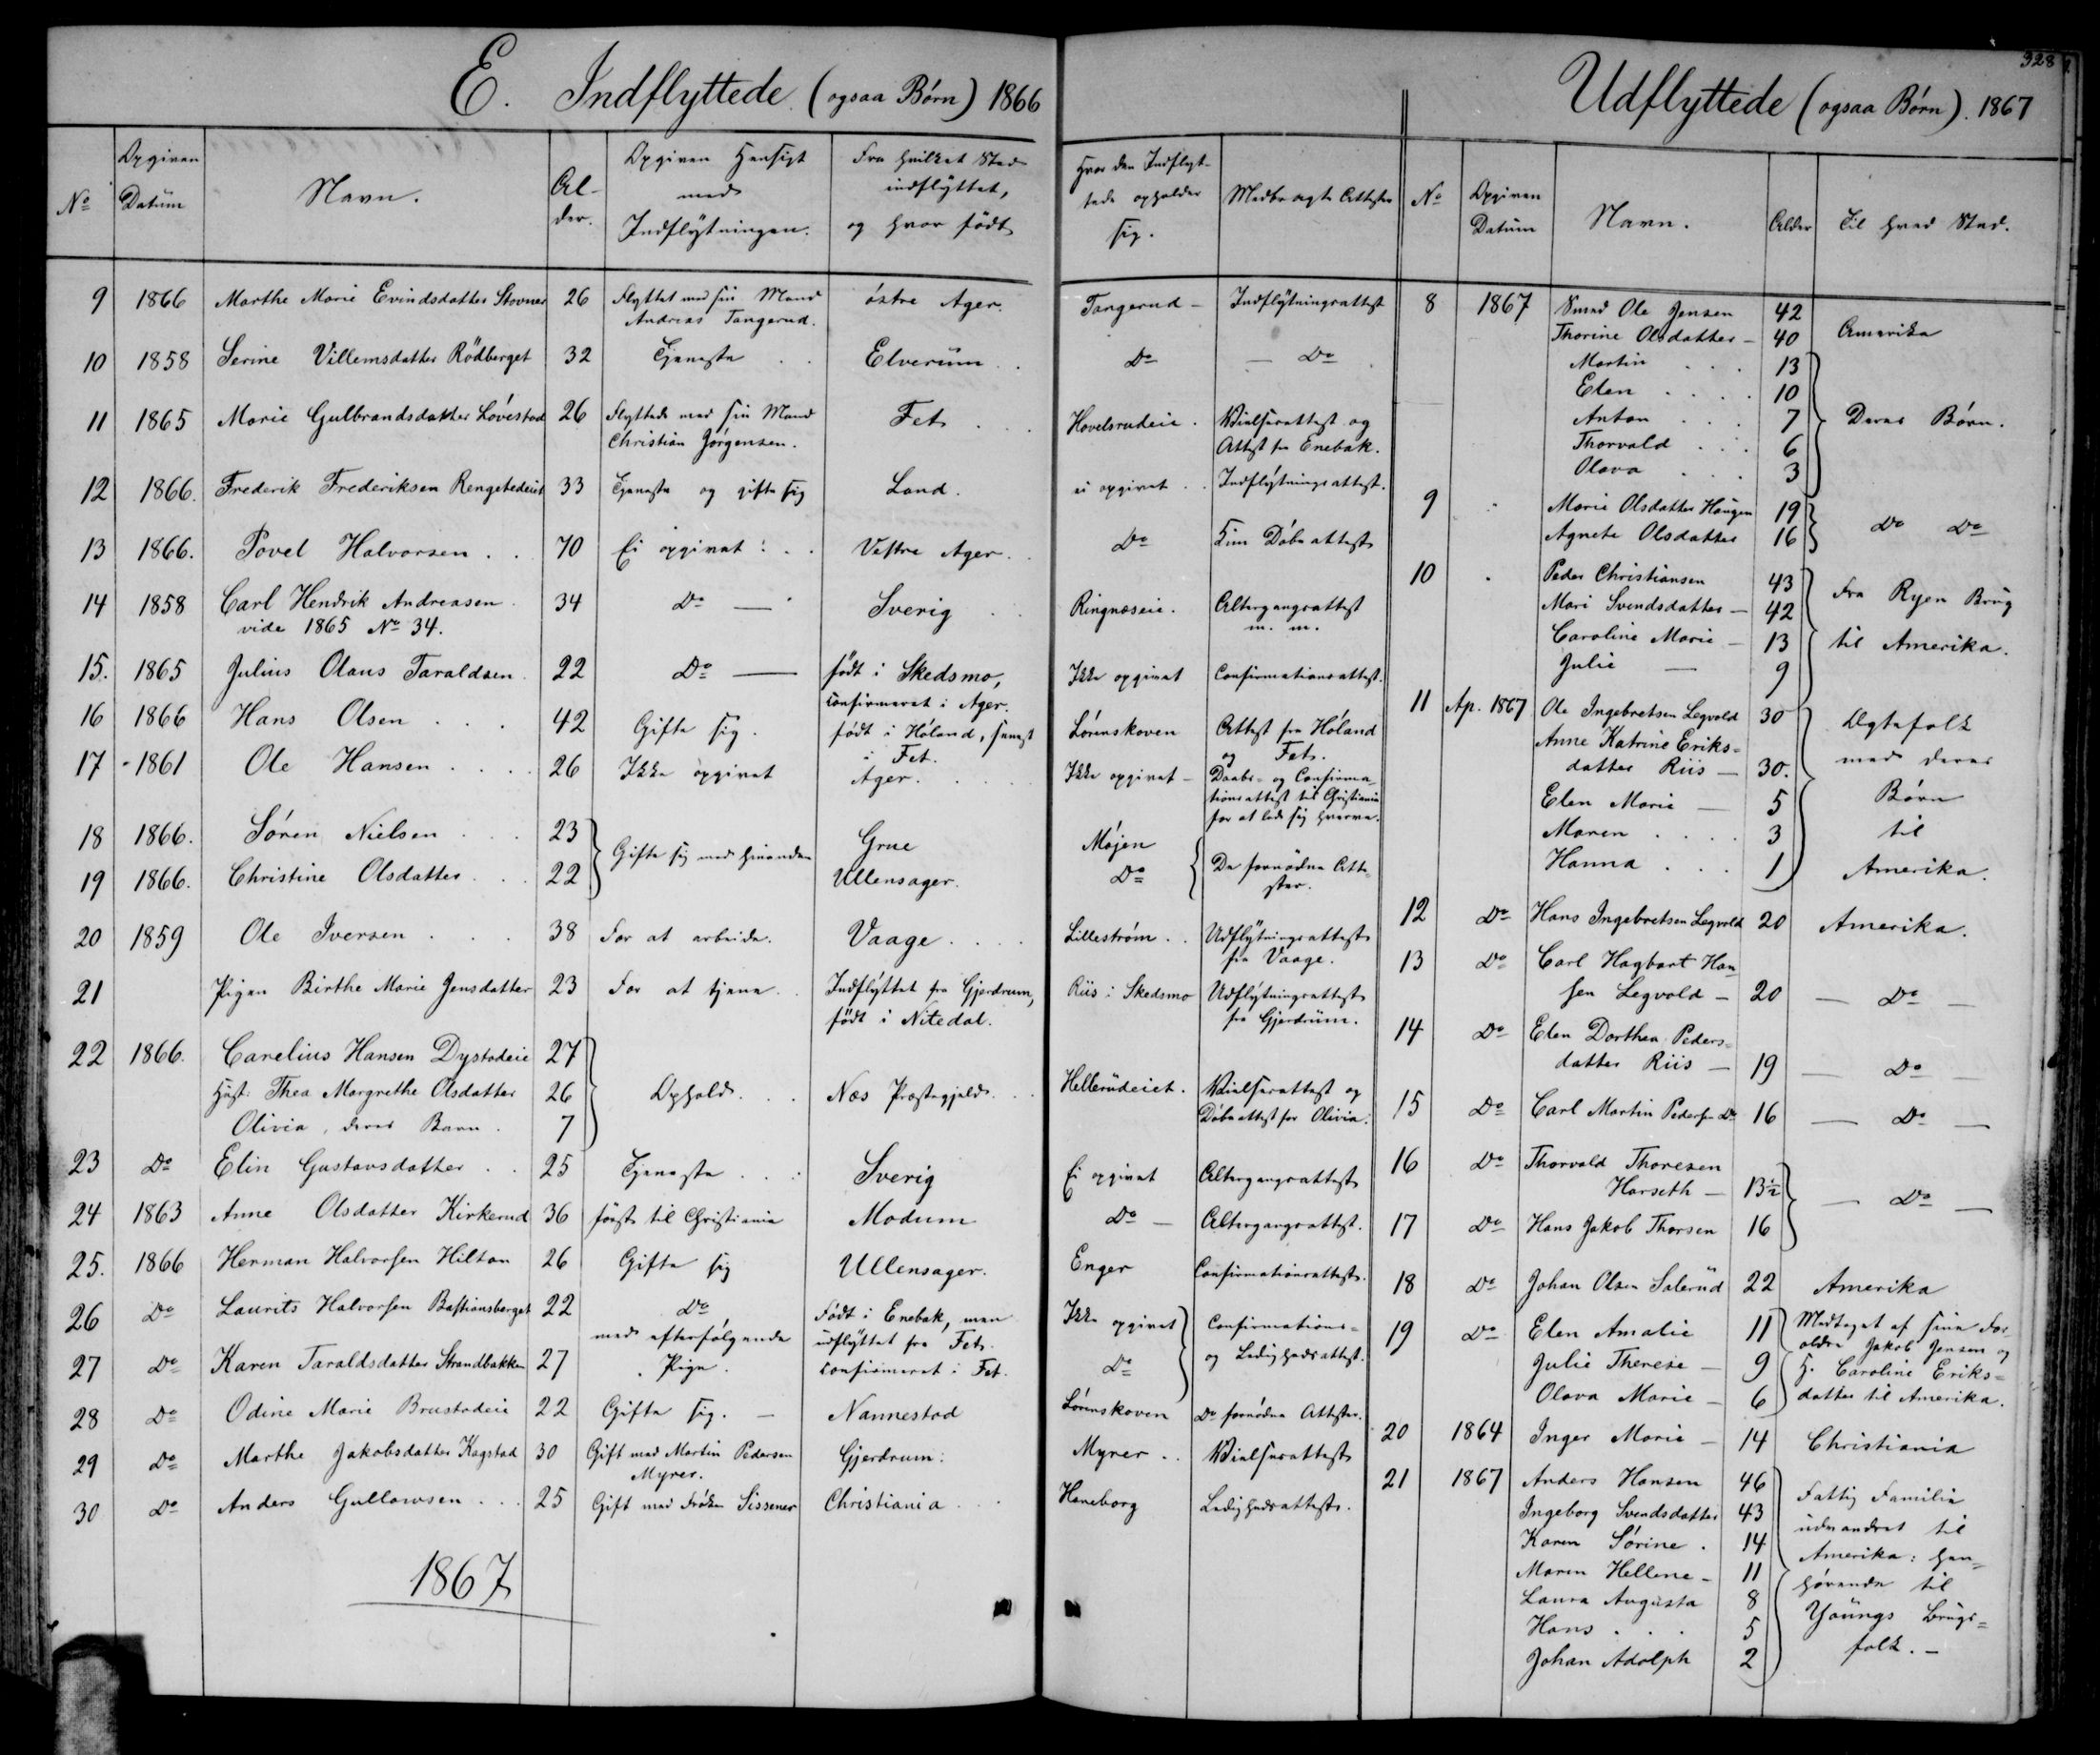 328
E. Indflyttede (ogsaa Børn) 1866
No | Opgiven Datum | Navn. | Al-der. | Opgiven Hensigt med Indflytningen. | Fra hvilket Sted indflyttet, og hvor født | Hvor den Indflyt-tede opholder sig. | Medbragte Attester
9 | 1866 | Marthe Marie Evindsdatter Stovner | 26 | Flyttet med sin Mand Andreas Tangerud. | østre Ager. | Tangerud - | Indflytningsattest
10 | 1858 | Serine Villemsdatter Rödberget | 32 | Tjeneste | Elverum | Do | Do
11 | 1865 | Marie Gulbrandsdatter Lövestad | 26 | Flyttede med sin Mand Christian Jørgensen. | Fet | Hovelsrudeie. | Vielsesattest og Attest fra Enebak.
12 | 1866. | Frederik Frederiksen | 33 | Tjeneste og gifte sig | Land. | ei opgivet | Indflytningsattest.
13 | 1866. | Povel Halvorsen | 70 | Ei opgivet | Vestre Ager | Do | Kun Døbeattest
14 | 1858 | Carl Hendrik Andreasen vide 1865 No 34. | 34 | Do | Sverig | Ringnæseie. | Altergangsattest m. m.
15. | 1865 | Julius Olaus Taraldsen | 22 | Do | født i Skedsmo, confirmeret i Ager. | Ikke opgivet | Confirmationsattest.
16 | 1866 | Hans Olsen | 42 | Gifte sig. | født i Høland, senest i Fet. | Lørenskoven | Attest fra Høland og Fet.
17 | 1861 | Ole Hansen | 26 | Ikke opgivet | Ager. | Ikke opgivet - | Daabs- og Confirma-tionsattest til Christiania for at lade sig hverve.
18 | 1866. | Søren Nielsen | 23 | Gifte sig med hinanden | Grue | Møjen | De fornødne Atte-ster.
19 | 1866. | Christine Olsdatter | 22 | Ullensager. | Do
20 | 1859 | Ole Iversen | 38 | For at arbeide. | Vaage | Lillestrøm | Udflytningsattest fra Vaage.
21 | Pigen Birthe Marie Jensdatter | 23 | For at tjene. | Indflyttet fra Gjerdrum, født i Nitedal. | Riis i Skedsmo | Udflytningsattest fra Gjerdrum.
22 | 1866. | Carelius Hansen Dystadeie | 27 | Ophold. | Næs Præstegjeld. | Hellerudeiet. | Vielsesattest og Døbeattest for Olivia.
Hust: Thea Margrethe Olsdatter | 26
Olivia, deres Barn. | 7
23 | Do | Elin Gustavsdatter | 25 | Tjeneste | Sverig | Ei opgivet | Altergangsattest
24 | 1863 | Anne Olsdatter Kirkerud | 36 | først til Christiania | Modum | Do - | Altergangsattest.
25. | 1866 | Herman Halvorsen Hilton | 26 | Gifte sig | Ullensager. | Enger | Confirmationsattest.
26 | Do | Laurits Halvorsen Bastiansberget | 22 | Do med efterfølgende Pige. | Født i Enebak, men udflyttet fra Fet. | Ikke opgivet | Confirmations- og Ledighedsattest.
27 | Do | Karen Taraldsdatter Strandbakken | 27 | confirmeret i Fet. | Do
28 | Do | Odine Marie Brustadeie | 22 | Gifte sig. - | Nannestad | Lørenskoven | De fornødne Attester.
29 | Do | Marthe Jakobsdatter Kagstad | 30 | Gift med Martin Pedersen Myrer. | Gjerdrum: | Myrer | Vielsesattest
30 | Do | Anders Gullowsen | 25 | Gift med Frøken Sissener | Christiania | Haneborg | Ledighedsattest.
1867
Udflyttede (ogsaa Børn). 1867
No | Opgiven Datum | Navn. | Alder | Til hvad Sted.
8 | 1867 | Smed Ole Jensen | 42 | Amerika
Thorine Olsdatter - | 40
Martin | 13 | Deres Børn.
Elen | 10
Anton | 7
Thorvald | 6
Olava | 3
9 | Marie Olsdatter Haugen | 19 | Do Do
Agnete Olsdatter | 16
10 | Peder Christiansen | 43 | Fra Ryen Brug til Amerika.
Mari Svendsdatter - | 42
Caroline Marie - | 13
Julie - | 9
11 | Ap. 1867 | Ole Ingebretsen Legvold | 30 | Ægtefolk med deres Børn til Amerika.
Anne Katrine Eriks-
datter Riis - | 30.
Elen Marie - | 5
Maren | 3
Hanna | 1
12 | Do | Hans Ingebretsen Legvold | 20 | Amerika.
13 | Do | Carl Hagbart Han-
sen Legvold - | 20 | Do
14 | Do | Elen Dorthea Peders-
datter Riis - | 19 | Do
15 | Do | Carl Martin Peders. Do | 16 | Do
16 | Do | Thorvald Thoresen
Harseth - | 13½ | Do
17 | Do | Hans Jakob Thorsen | 16
18 | Do | Johan Olsen Solerud | 22 | Amerika
19 | Do | Elen Amalie | 11 | Medtaget af sine For-ældre Jakob Jensen og H. Caroline Eriks-datter til Amerika.
Julie Therese - | 9
Olava Marie - | 6
20 | 1864 | Inger Marie - | 14 | Christiania
21 | 1867 | Anders Hansen | 46 | Fattig Familie udvandret til Amerika: hen-hørende til Youngs Brugs-folk. -
Ingeborg Svendsdatter | 43
Karen Sørine. | 14
Maren Hellene - | 11
Laura Augusta | 8
Hans | 5
Johan Adolph | 2